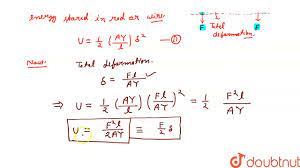 Energy stored in rod or wire
F F
Total
deformation.
U = 1/2 (AY/l) δ² — ②
Now: Total deformation.
δ = Fl/AY ✓
⇒ U = 1/2 (AY/l) (Fl/AY)² = 1/2 F²l/AY
U = F²l/2AY ≡ F/2 δ
doubtnut